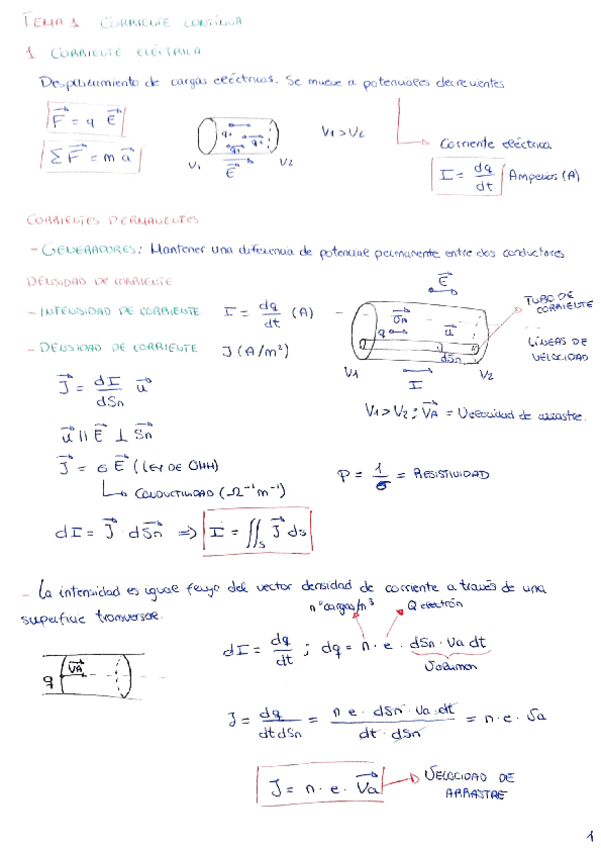 TEMA 1 CORRIENTE CONTÍNUA
1 CORRIENTE ELÉCTRICA
Desplazamiento de cargas eléctricas. Se mueve a potenciales decrecientes
F = q E
ΣF = m a
q+ q+ q+
V1 E V2
V1 > V2
Corriente eléctrica
I = dq/dt Amperios (A)
CORRIENTES PERMANENTES
- GENERADORES: Mantener una diferencia de potencial permanente entre dos conductores
DENSIDAD DE CORRIENTE
- INTENSIDAD DE CORRIENTE I = dq/dt (A)
- DENSIDAD DE CORRIENTE J (A/m²)
E
VA
q u
dSn
V1 I V2
TUBO DE CORRIENTE
LÍNEAS DE VELOCIDAD
J = dI/dSn u
V1 > V2 ; VA = Velocidad de arrastre.
u || E ⊥ Sn
J = σ E (LEY DE OHM)
CONDUCTIVIDAD (Ω⁻¹m⁻¹)
ρ = 1/σ = RESISTIVIDAD
dI = J dSn ⇒ I = ∬s J ds
- La intensidad es igual flujo del vector densidad de corriente a través de una
superficie transversal.
nº cargas/m³ Q electrón
dI = dq/dt ; dq = n · e · dSn · Va dt
Volumen
q VA
J = dq/dtdSn = n e · dSn · Va · dt/dt · dSn = n · e · Va
J = n · e · Va
VELOCIDAD DE ARRASTRE
1